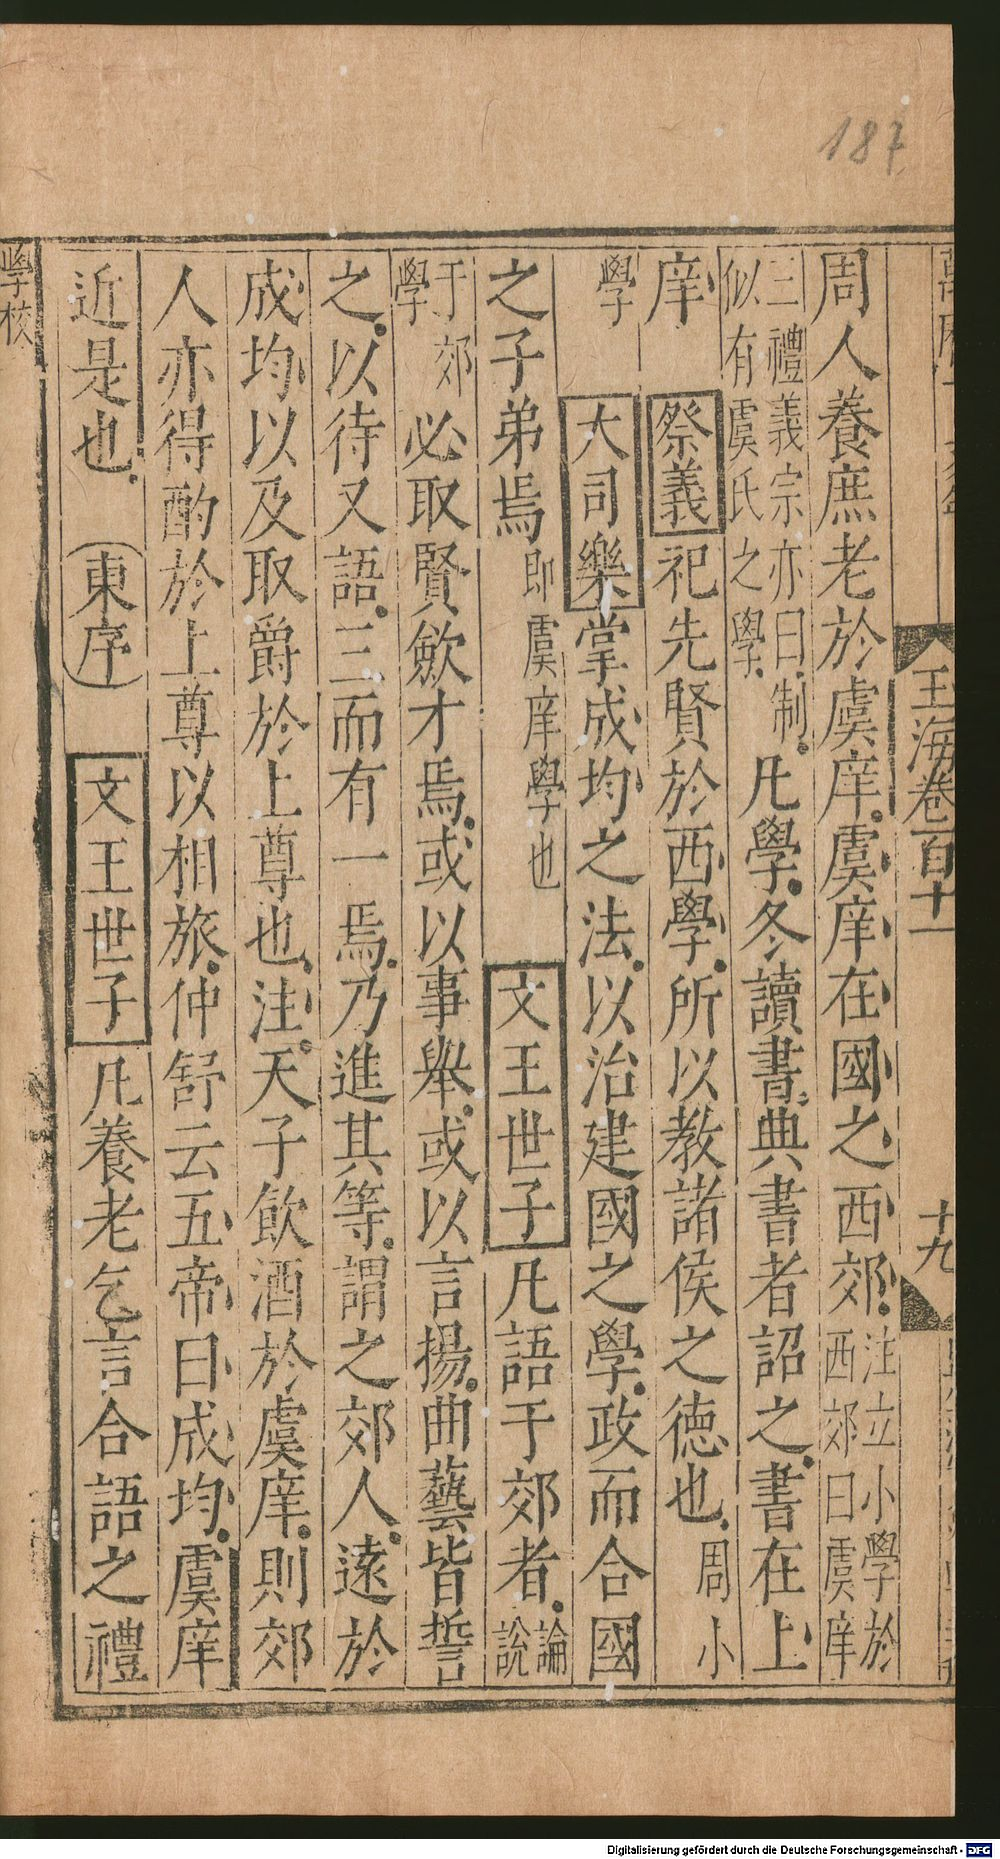 187
玉海卷百十一
十九
周人養庶老於虞庠。虞庠在國之西郊。注立小學於西郊曰虞庠
三禮義宗亦曰制。似有虞氏之學。凡學。冬讀書。典書者詔之。書在上
庠 祭義祀先賢於西學。所以教諸侯之德也。周小
學 大司樂掌成均之法。以治建國之學。政而合國
之子弟焉即虞庠學也 文王世子凡語于郊者。論說
于郊學必取賢歛才焉。或以事舉。或以言揚。曲藝皆誓
之。以待又語。三而有一焉。乃進其等。謂之郊人。遠於
成均以及取爵於上尊也。注。天子飲酒於虞庠。則郊
人亦得酌於上尊以相旅。仲舒云五帝曰成均。虞庠
近是也。 東序 文王世子凡養老乞言合語之禮
學校
Digitalisierung gefördert durch die Deutsche Forschungsgemeinschaft - DFG